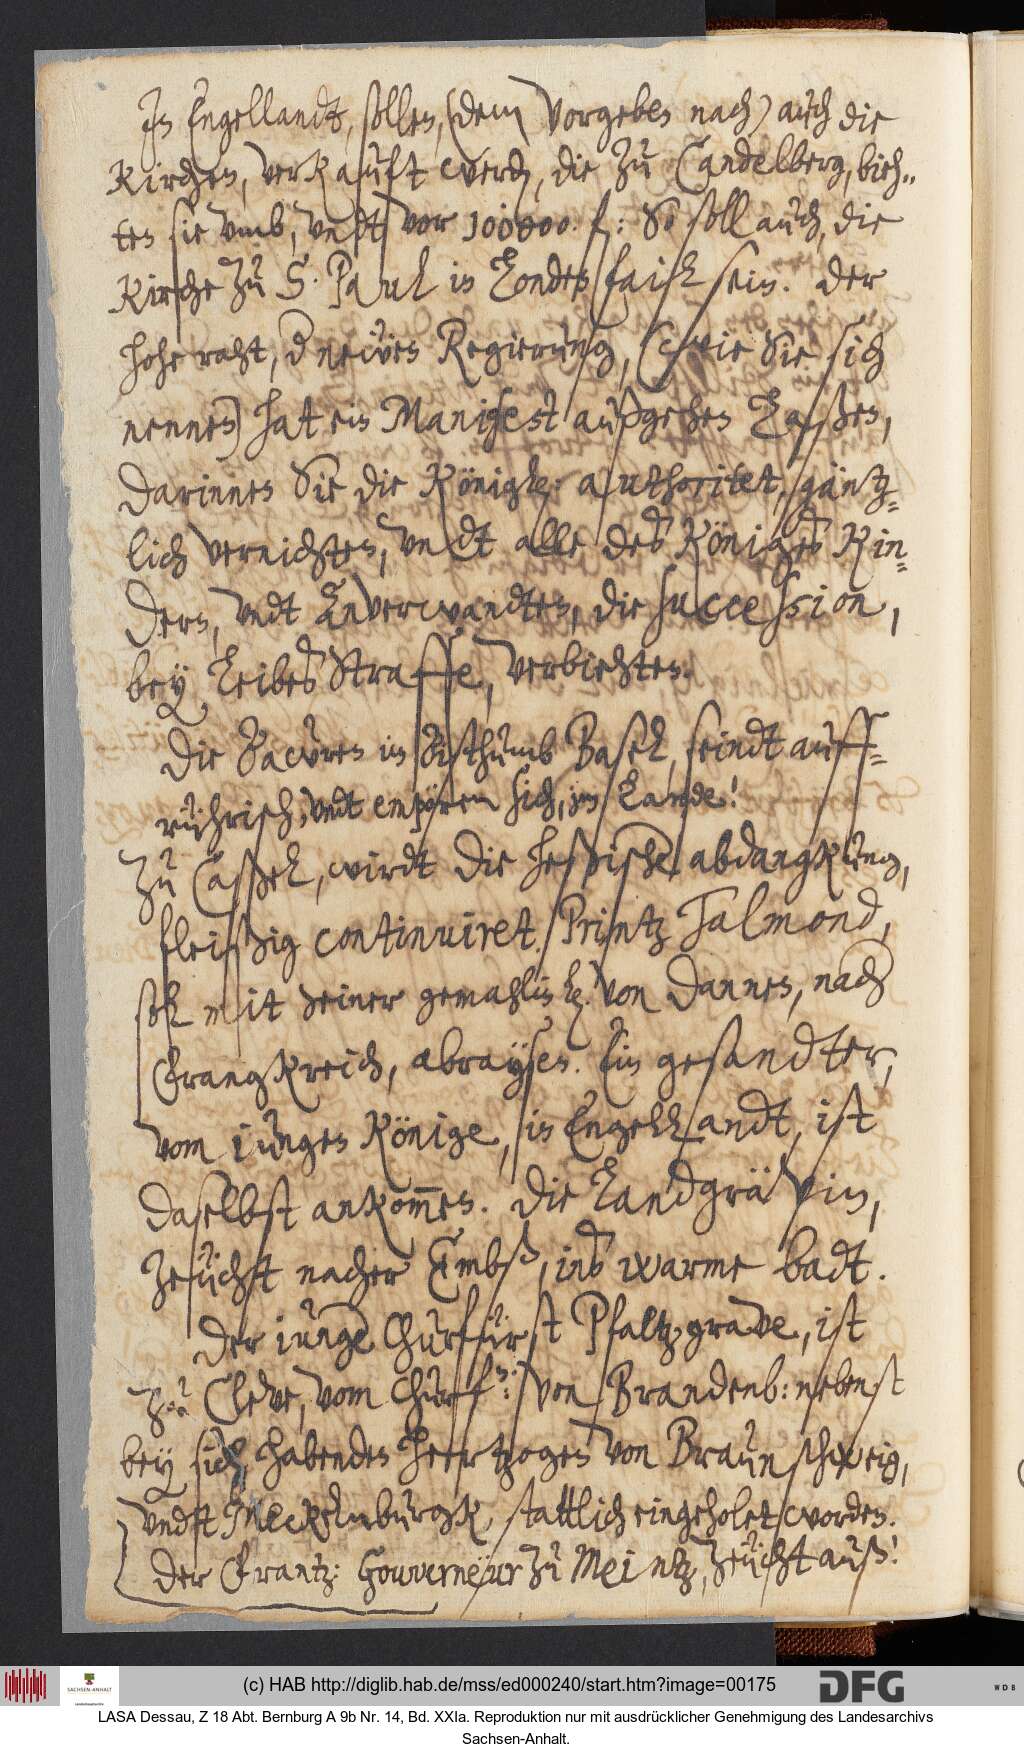 In Engellandt, sollen, (dem Vorgeben nach) auch die
Kirchen, verkauft werden, die zu Candelberg, biehten
sie umb, undt vor 100000 f: So soll auch, die
Kirche zu S. Paul in Londen faihl sein. Der
hohe raht, d neuen Regierung, (wie Sie sich
nennen) hat ein Manifest außgehen Laßen,
darinnen Sie die Königl: authoritet, gäntz=
lich vernichten, undt alle des Königes Kin=
dern, undt Anverwandten, die succession,
bey Leibes Straffe, verbiehten.
Die Bawren im Bisthumb Basel, seindt auff=
rührisch, undt empören sich, im Lande!
Zu Caßel, wirdt die heßische abdangkung,
fleißig continuiret. Printz Talmond,
sol mit seiner gemahlin von dannen, nach
Frangkreich, abraysen. Ein gesandter,
vom iungen Könige, in Engellandt, ist
daselbst ankom̅en. Die Landgrävin,
zeücht nacher Embß, ins warme badt.
Der iunge Churfürst Pfaltzgrave, ist
zu Cleve, vom Churf: von Brandenb: nebenst
bey sich habenden Heertzogen von Braunschweig,
undt Mecklnburgk, stattlich eingeholet worden.
Der Frantz: Gouverneur zu Meintz, zeücht auß!
(c) HAB http://diglib.hab.de/mss/ed000240/start.htm?image=00175
SACHSEN-ANHALT
DFG
WDB
LASA Dessau, Z 18 Abt. Bernburg A 9b Nr. 14, Bd. XXIa. Reproduktion nur mit ausdrücklicher Genehmigung des Landesarchivs
Sachsen-Anhalt.